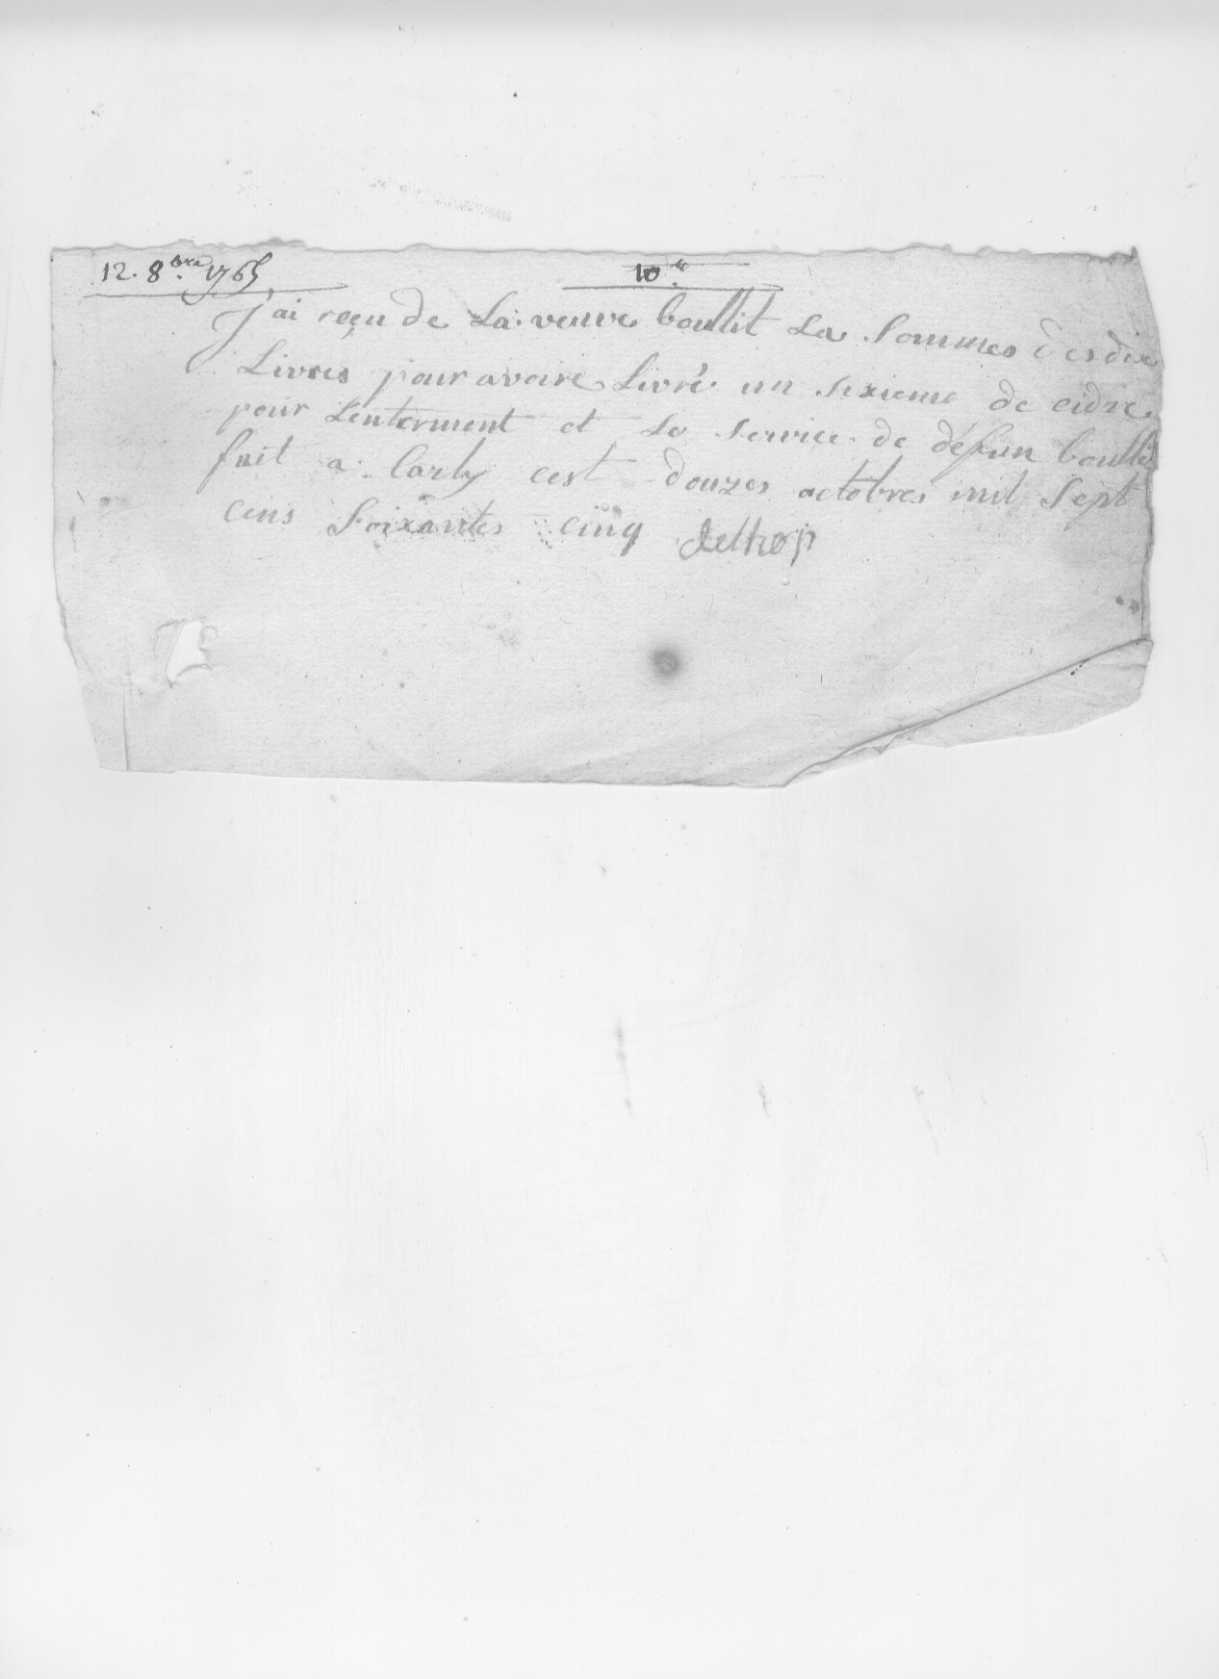 12. 8bre. 1765 10#
J'ai reçu de La veuve boullit La Sommes des dix
Livres pour avoire Livré un sixieme de cidre
pour Lenterment et Le service de défun boullit
fait a Carly cest douzes octobres mil sept
cens Soixantes cinq delhop